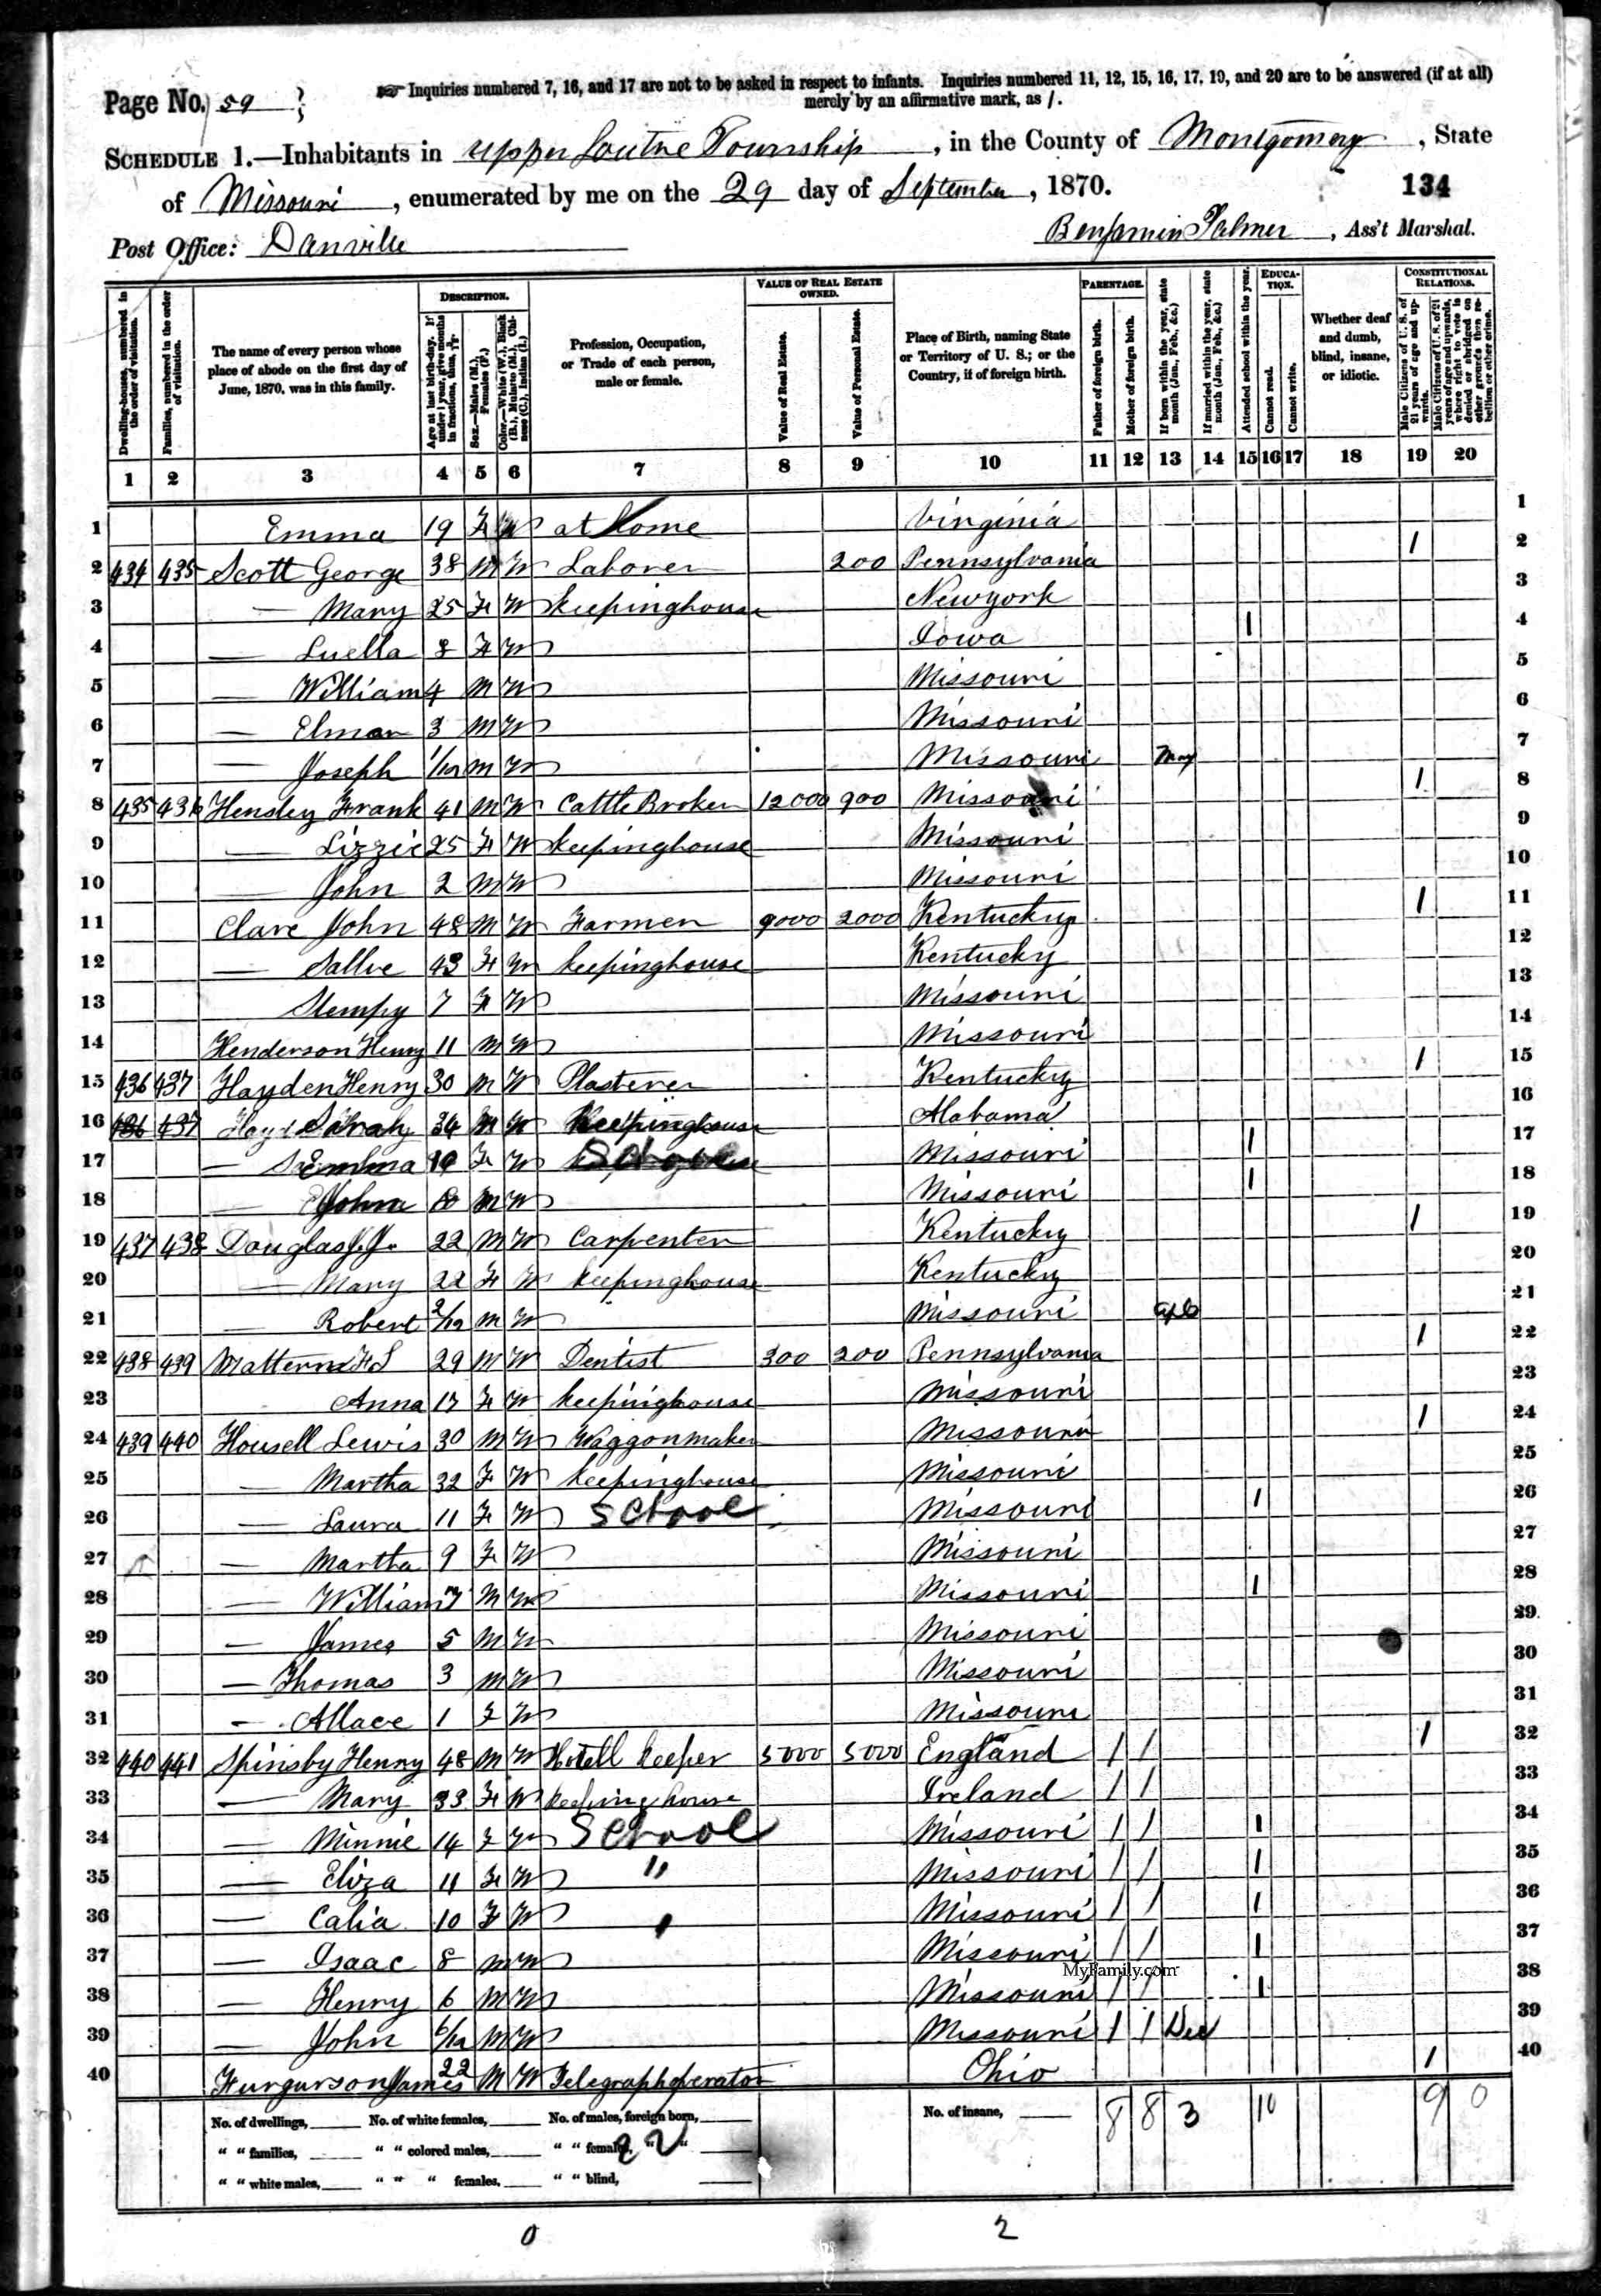 Page No. 59
☞ Inquiries numbered 7, 16, and 17 are not to be asked in respect to infants. Inquiries numbered 11, 12, 15, 16, 17, 19, and 20 are to be answered (if at all)
merely by an affirmative mark, as /.
SCHEDULE 1.—Inhabitants in Upper Loutre Township, in the County of Montgomery, State
of Missouri, enumerated by me on the 29 day of September, 1870. 134
Post Office: Danville Benjamin Palmer, Ass't Marshal.
Dwelling-houses, numbered in the order of visitation.
Families, numbered in the order of visitation.
The name of every person whose place of abode on the first day of June, 1870, was in this family.
DESCRIPTION.
Age at last birth-day. If under 1 year, give months in fractions, thus, 3/12.
Sex.—Males (M.), Females (F.)
Color.—White (W.), Black (B.), Mulatto (M.), Chinese (C.), Indian (I.)
Profession, Occupation, or Trade of each person, male or female.
VALUE OF REAL ESTATE OWNED.
Value of Real Estate.
Value of Personal Estate.
Place of Birth, naming State or Territory of U. S.; or the Country, if of foreign birth.
PARENTAGE.
Father of foreign birth.
Mother of foreign birth.
If born within the year, state month (Jan., Feb., &c.)
If married within the year, state month (Jan., Feb., &c.)
Attended school within the year.
EDUCATION.
Cannot read.
Cannot write.
Whether deaf and dumb, blind, insane, or idiotic.
CONSTITUTIONAL RELATIONS.
Male Citizens of U. S. of 21 years of age and upwards.
Male Citizens of U. S. of 21 years of age and upwards, where right to vote is denied or abridged on other grounds than rebellion or other crime.
1 2 3 4 5 6 7 8 9 10 11 12 13 14 15 16 17 18 19 20
1 Emma 19 F W at Home Virginia 1
2 434 435 Scott George 38 M W Laborer 200 Pennsylvania / 2
3 — Mary 25 F W keepinghouse Newyork 3
4 — Luella 8 F W Iowa / 4
5 — William 4 M W Missouri 5
6 — Elmar 3 M W Missouri 6
7 — Joseph 1/12 M W Missouri May 7
8 435 436 Hensley Frank 41 M W Cattle Broker 12000 900 Missouri / 8
9 — Lizzie 25 F W keepinghouse Missouri 9
10 — John 2 M W Missouri 10
11 Clare John 48 M W Farmer 9000 2000 Kentucky / 11
12 — Sallie 43 F W keepinghouse Kentucky 12
13 Stempy 7 F W Missouri 13
14 Henderson Henry 11 M W Missouri 14
15 436 437 Hayden Henry 30 M W Plasterer Kentucky / 15
16 436 437 Sarah 34 W Keepinghouse Alabama 16
17 — Emma F W School Missouri / 17
18 — John M W Missouri / 18
19 437 438 Douglas J.J. 22 M W Carpenter Kentucky / 19
20 — Mary 22 F W keepinghouse Kentucky 20
21 — Robert 2/12 M W Missouri 21
22 438 439 Mattern H S 29 M W Dentist 300 200 Pennsylvania / 22
23 Anna 17 F W keepinghouse Missouri 23
24 439 440 Housell Lewis 30 M W Waggonmaker Missouri / 24
25 — Martha 32 F W keepinghouse Missouri 25
26 — Laura 11 F W School Missouri / 26
27 — Martha 9 F W Missouri 27
28 — William 7 M W Missouri / 28
29 — James 5 M W Missouri 29
30 — Thomas 3 M W Missouri 30
31 — Allace 1 F W Missouri 31
32 440 441 Spinsby Henry 48 M W Hotell keeper 5000 5000 England / / / 32
33 — Mary 33 F W keeping house Ireland / / 33
34 — Minnie 14 F W School Missouri / / / 34
35 — Eliza 11 F W " Missouri / / / 35
36 — Calia 10 F W Missouri / / / 36
37 — Isaac 8 M W Missouri / / / 37
MyFamily.com
38 — Henry 6 M W Missouri / / / 38
39 — John 6/12 M W Missouri / / Dec 39
40 Furgurson James 22 M W Telegraph operator Ohio / 40
No. of dwellings, No. of white females, No. of males, foreign born, No. of insane, 8 8 3 10 9 0
" " families, " " colored males, " " females, " "
" " white males, " " " females, " " blind,
22
0 2